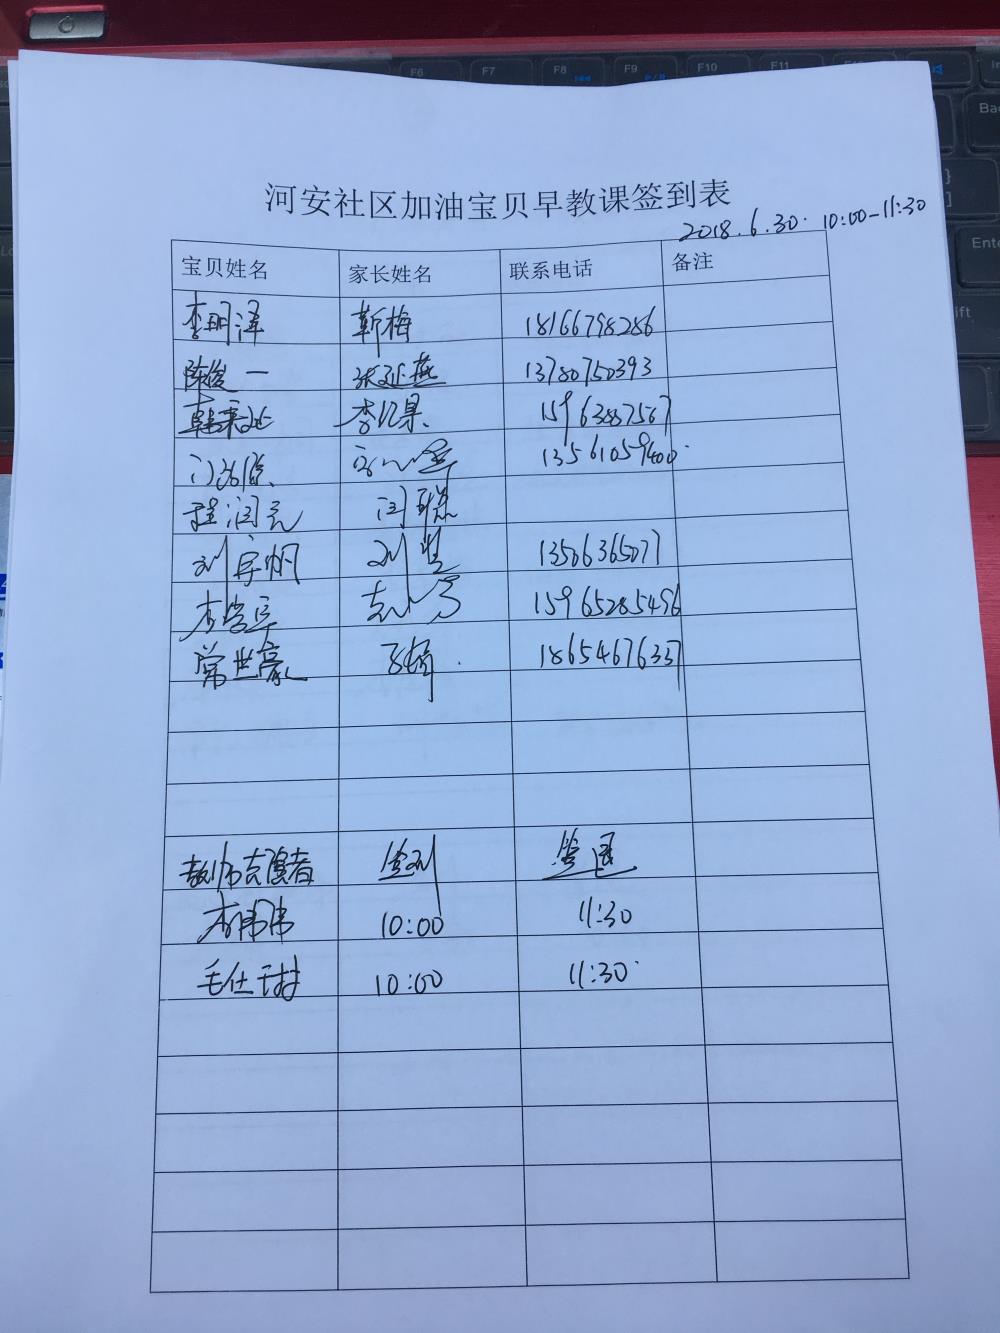 河安社区加油宝贝早教课签到表
2018.6.30. 10:00-11:30
宝贝姓名 家长姓名 联系电话 备注
李明泽 靳梅 18166798286
陈俊一 张延燕 13780750393
15963887567
13561059400
程润元 闫聪
刘宇帆 刘 13506365077
李学军 15965285496
常世豪 18654676337
教师志愿者 签到 签退
李伟伟 10:00 11:30
毛仕 10:00 11:30
F6 F7 F8 F9 F10 F11